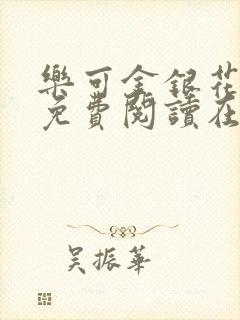 樂可金銀花
免費閱讀在
吳振華